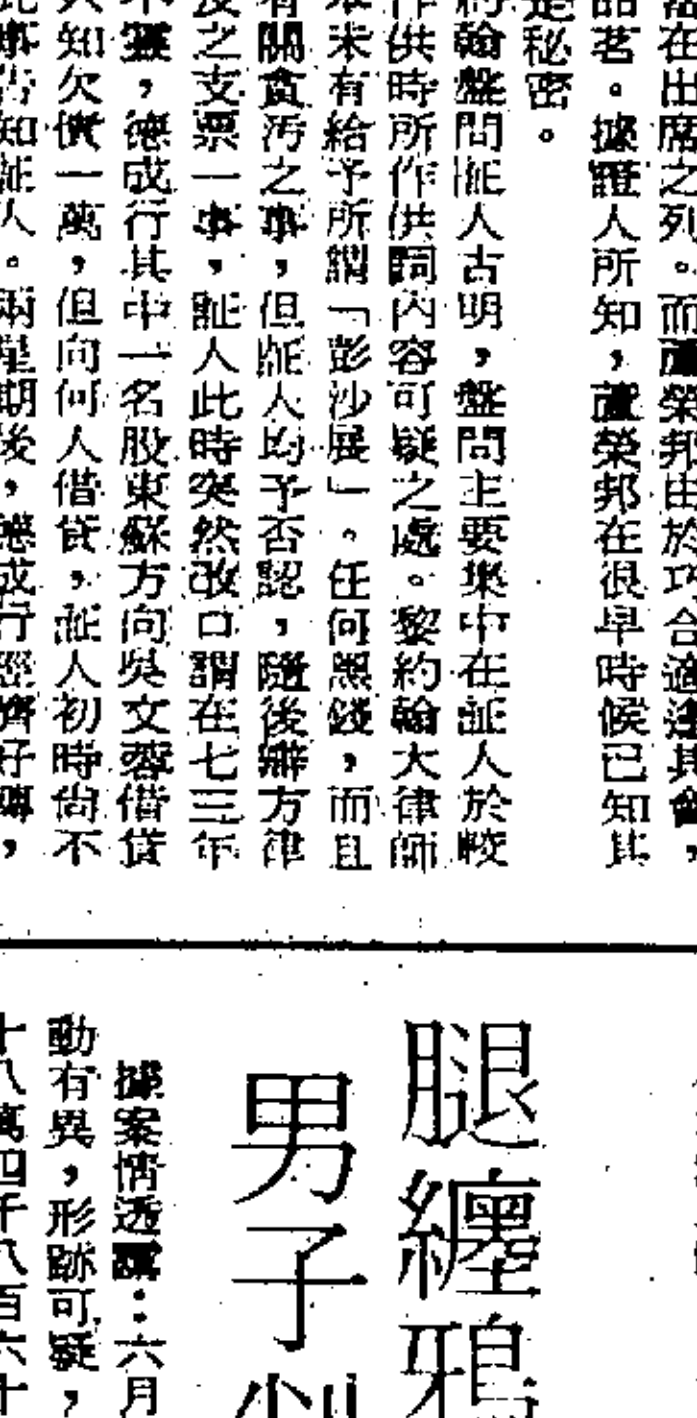 當在出席之列。而盧榮邦由於巧合適逢其會，
品茗。據證人所知，盧榮邦在很早時候已知其
是秘密。
約翰盤問証人古明，盤問主要集中在証人於較
作供時所作供詞內容可疑之處。黎約翰大律師
未有給予所謂「彭沙展」。任何黑錢，而且
有關貪污之事，但証人均予否認，隨後辯方律
及之支票一事，証人此時突然改口謂在七三年
不靈，德成行其中一名股東蘇方向吳文蓉借貸
只知欠債一萬，但向何人借貸，証人初時尙不
此事告知証人。兩星期後，德成行經濟好轉，
腿纏鴉
男子判
據案情透露：六月
動有異，形跡可疑，
十八萬四千八百六十